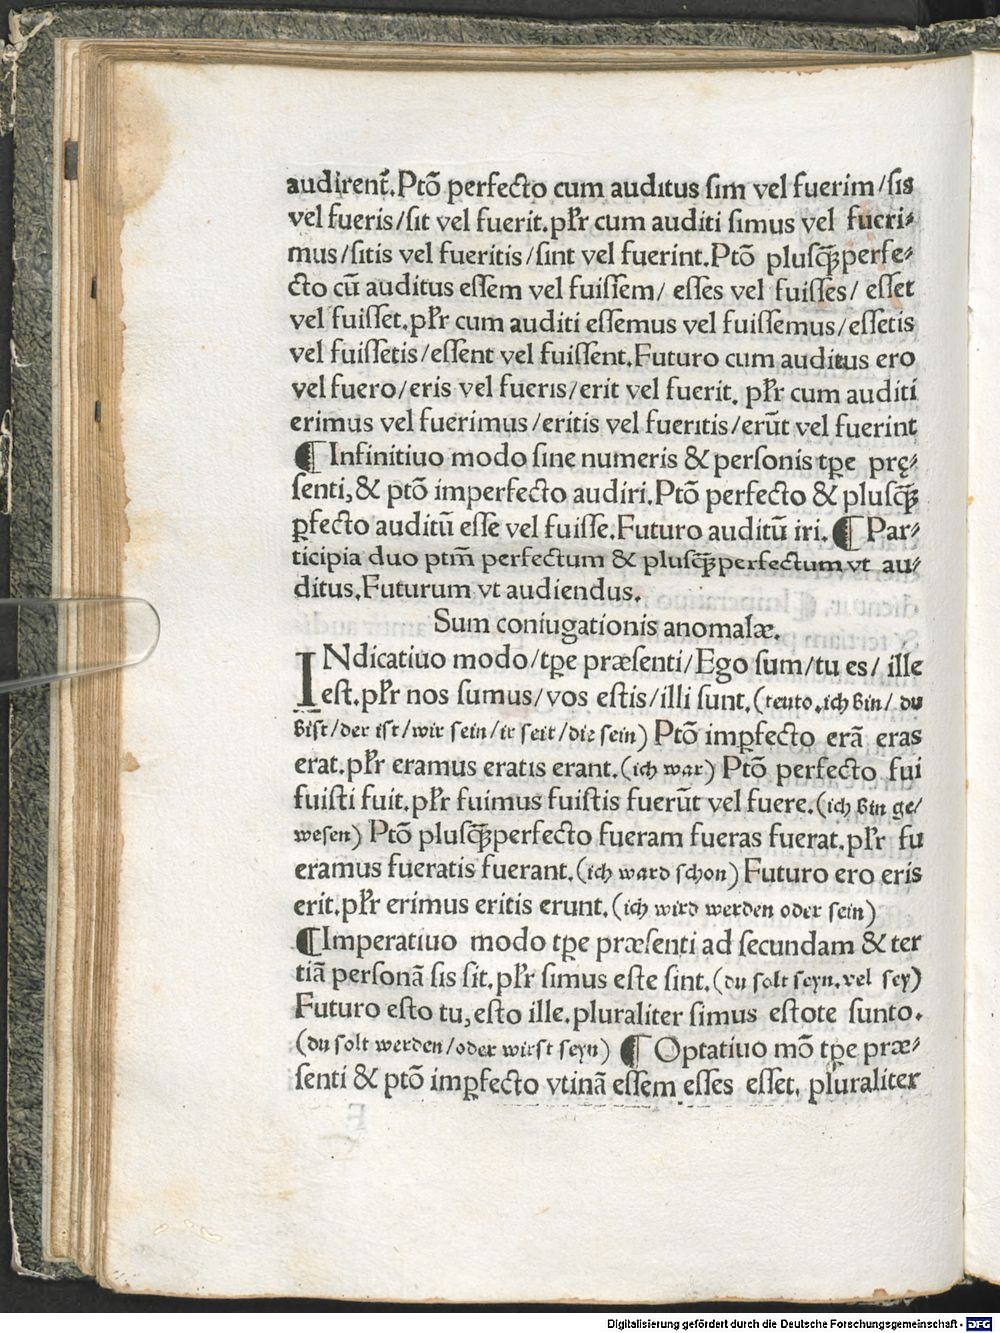 audirent᷑.Ptō perfecto cum auditus sim vel fuerim/sis
vel fueris/sit vel fuerit.pl̃r cum auditi simus vel fueri⸗
mus/sitis vel fueritis/sint vel fuerint.Ptō plusq̄ꝑperfe⸗
cto cū auditus essem vel fuissem/ esses vel fuisses/ esset
vel fuisset.pl̃r cum auditi essemus vel fuissemus/essetis
vel fuissetis/essent vel fuissent.Futuro cum auditus ero
vel fuero/eris vel fueris/erit vel fuerit. pl̃r cum auditi
erimus vel fuerimus/eritis vel fueritis/erūt vel fuerint
¶ Infinitiuo modo sine numeris & personis tꝑe prę⸗
senti,& ptō imperfecto audiri.Ptō perfecto & plusq̄ꝑ
ꝑfecto auditū esse vel fuisse.Futuro auditū iri. ¶ Par⸗
ticipia duo ptm̄ perfectum & plusq̄ꝑperfectum vt au⸗
ditus.Futurum vt audiendus.
Sum coniugationis anomalæ.
INdicatiuo modo/tꝑe præsenti/Ego sum/tu es/ ille
est.pl̃r nos sumus/vos estis/illi sunt.(teuto.ich bin/ du
bist/der ist/wir sein/ir seit/die sein) Ptō imꝑfecto erā eras
erat.pl̃r eramus eratis erant.(ich war) Ptō perfecto fui
fuisti fuit.pl̃r fuimus fuistis fuerūt vel fuere.(ich bin ge/
wesen) Ptō plusq̄ꝑperfecto fueram fueras fuerat.pl̃r fu
eramus fueratis fuerant.(ich ward schon) Futuro ero eris
erit.pl̃r erimus eritis erunt.(ich wird werden oder sein)
¶Imperatiuo modo tꝑe præsenti ad secundam & ter
tiā personā sis sit.pl̃r simus este sint.(du solt seyn.vel sey)
Futuro esto tu,esto ille.pluraliter simus estote sunto.
(du solt werden/oder wirst seyn) ¶ Optatiuo mō tꝑe præ⸗
senti & ptō imꝑfecto vtinā essem esses esset. pluraliter
Digitalisierung gefördert durch die Deutsche Forschungsgemeinschaft - DFG